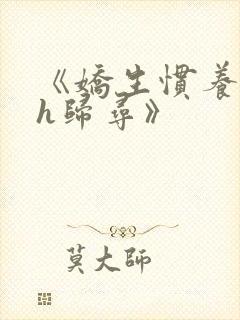 《嬌生慣養
h歸尋》
莫大師